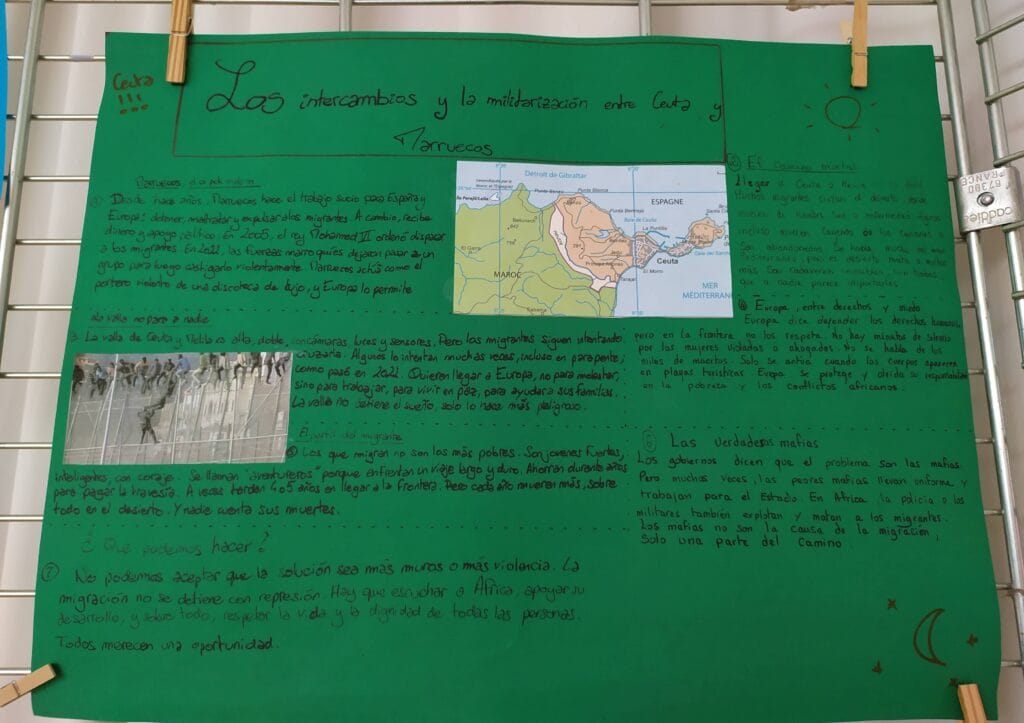 Ceuta
!!!
Los intercambios y la militarización entre Ceuta y
Marruecos
Marruecos
① Desde hace años, Marruecos hace el trabajo sucio para España y
Europa: detener, maltratar y expulsar a los migrantes. A cambio, recibe
dinero y apoyo político. En 2005, el rey Mohamed VI ordenó disparar
a los migrantes. En 2022, las fuerzas marroquíes dejaron pasar a un
grupo para luego castigarlo violentamente. Marruecos actúa como el
portero violento de una discoteca de lujo, y Europa lo permite
Détroit de Gibraltar
ESPAGNE
Punta Blanca
Punta Bermeja
Baie de Ceuta
La Puntilla
Santa Catalina
Beliounech
El Garra
Ceuta
El Morro
Tarajal
MAROC
MER
MÉDITERRANÉE
② El camino mortal
Llegar a Ceuta o Melilla
Muchos migrantes cruzan el desierto donde
mueren de hambre, sed o enfermedad. Algunos
incluso mueren
Son abandonados. Se habla mucho del mar
Mediterráneo, pero el desierto mata a muchos
más. Son cadáveres invisibles,
que a nadie parece importarles
La valla no para a nadie
3. La valla de Ceuta y Melilla es alta, doble, con cámaras, luces y sensores. Pero los migrantes siguen intentando
cruzarla. Algunos lo intentan muchas veces, incluso en parapente,
como pasó en 2022. Quieren llegar a Europa, no para molestar,
sino para trabajar, para vivir en paz, para ayudar a sus familias.
La valla no detiene el sueño, solo lo hace más peligroso.
④ Europa, entre derechos y miedo
Europa dice defender los derechos humanos,
pero en la frontera no los respeta. No hay minutos de silencio
por las mujeres violadas o ahogadas. No se habla de los
miles de muertos. Solo se actúa cuando los cuerpos aparecen
en playas turísticas. Europa se protege y olvida su responsabilidad
en la pobreza y los conflictos africanos.
El perfil del migrante
⑤ Los que migran no son los más pobres. Son jóvenes fuertes,
inteligentes, con coraje. Se llaman "aventureros" porque enfrentan un viaje largo y duro. Ahorran durante años
para pagar la travesía. A veces tardan 4 o 5 años en llegar a la frontera. Pero cada año mueren más, sobre
todo en el desierto. Y nadie cuenta sus muertes.
⑥ Las verdaderas mafias
Los gobiernos dicen que el problema son las mafias.
Pero muchas veces, las peores mafias llevan uniforme y
trabajan para el Estado. En África, la policía o los
militares también explotan y matan a los migrantes.
Las mafias no son la causa de la migración,
Solo una parte del camino.
¿Qué podemos hacer?
⑦ No podemos aceptar que la solución sea más muros o más violencia. La
migración no se detiene con represión. Hay que escuchar a África, apoyar su
desarrollo, y sobre todo, respetar la vida y la dignidad de todas las personas.
Todos merecen una oportunidad.
caddie
FRANCE